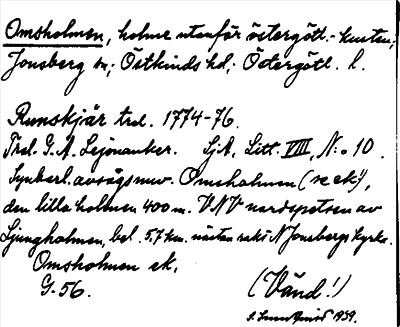 Omsholmen, holme utanför östergötl.-kusten;
Jonsberg sn; Östkinds hd; Östergötl. l.
Runskjär trol. 1774-76.
Trol. G. A. Lejonanker. SjA, Litt. VIII, N:o 10.
Synbarl. avsågs nuv. Omsholmen (se ek!),
den lilla holmen 400 m. VNV nordspetsen av
Ljungholmen, bel. 5,7 km. nästan rakt N Jonsbergs kyrka.
Omsholmen ek.
G. 56.
(Vänd!)
1939.